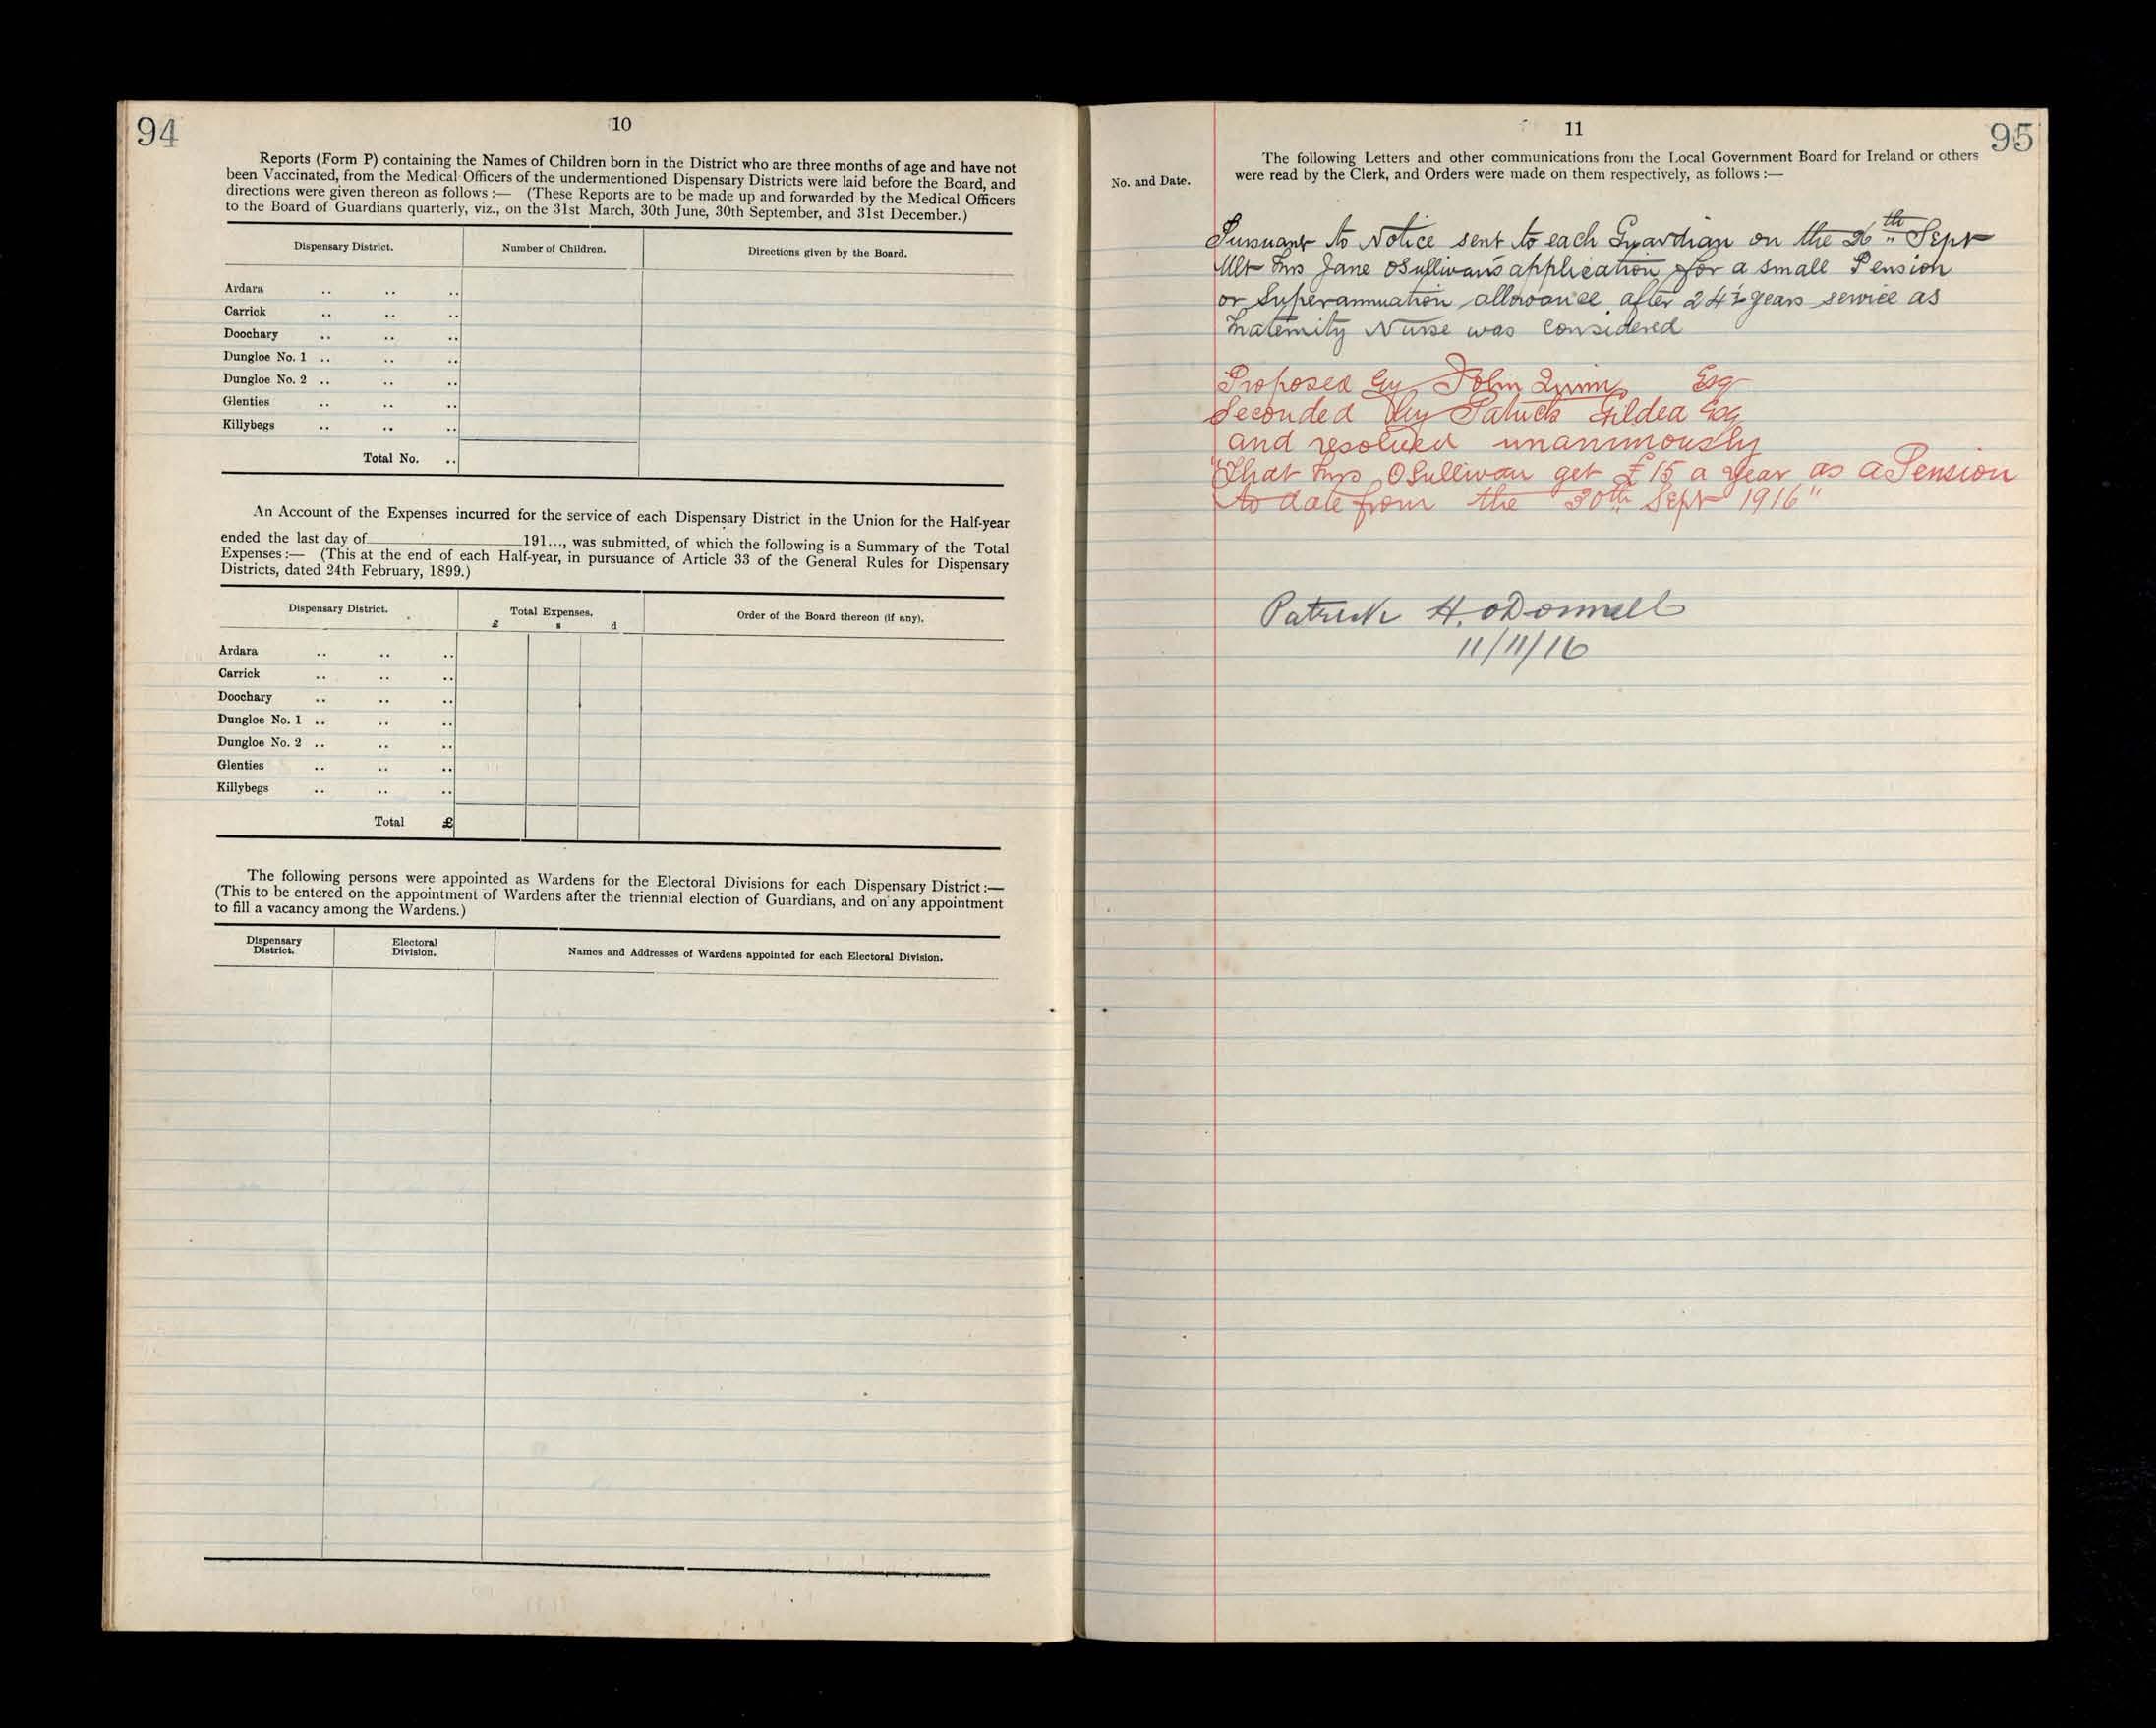 94
10
Reports (Form P) containing the Names of Children born in the District who are three months of age and have not
been Vaccinated, from the Medical Officers of the undermentioned Dispensary Districts were laid before the Board, and
directions were given thereon as follows :— (These Reports are to be made up and forwarded by the Medical Officers
to the Board of Guardians quarterly, viz., on the 31st March, 30th June, 30th September, and 31st December.)
Dispensary District. Number of Children. Directions given by the Board.
Ardara .. .. ..
Carrick .. .. ..
Doochary .. .. ..
Dungloe No. 1 .. .. ..
Dungloe No. 2 .. .. ..
Glenties .. .. ..
Killybegs .. .. ..
Total No. ..
An Account of the Expenses incurred for the service of each Dispensary District in the Union for the Half-year
ended the last day of 191..., was submitted, of which the following is a Summary of the Total
Expenses :— (This at the end of each Half-year, in pursuance of Article 33 of the General Rules for Dispensary
Districts, dated 24th February, 1899.)
Dispensary District. Total Expenses. Order of the Board thereon (if any).
£ s d
Ardara .. .. ..
Carrick .. .. ..
Doochary .. .. ..
Dungloe No. 1 .. .. ..
Dungloe No. 2 .. .. ..
Glenties .. .. ..
Killybegs .. .. ..
Total £
The following persons were appointed as Wardens for the Electoral Divisions for each Dispensary District :—
(This to be entered on the appointment of Wardens after the triennial election of Guardians, and on any appointment
to fill a vacancy among the Wardens.)
Dispensary District. Electoral Division. Names and Addresses of Wardens appointed for each Electoral Division.
11
95
No. and Date.
The following Letters and other communications from the Local Government Board for Ireland or others
were read by the Clerk, and Orders were made on them respectively, as follows :—
Pursuant to Notice sent to each Guardian on the 26th Sept
Ult Mrs Jane OSullivan's application for a small Pension
or Superannuation allowance after 24½ years service as
Maternity Nurse was considered
Proposed by John Quinn Esq
Seconded by Patrick Gildea Esq
and resolved unanimously
"That Mrs OSullivan get £15 a year as a Pension
to date from the 30th Sept 1916"
Patrick H. ODonnell
11/11/16